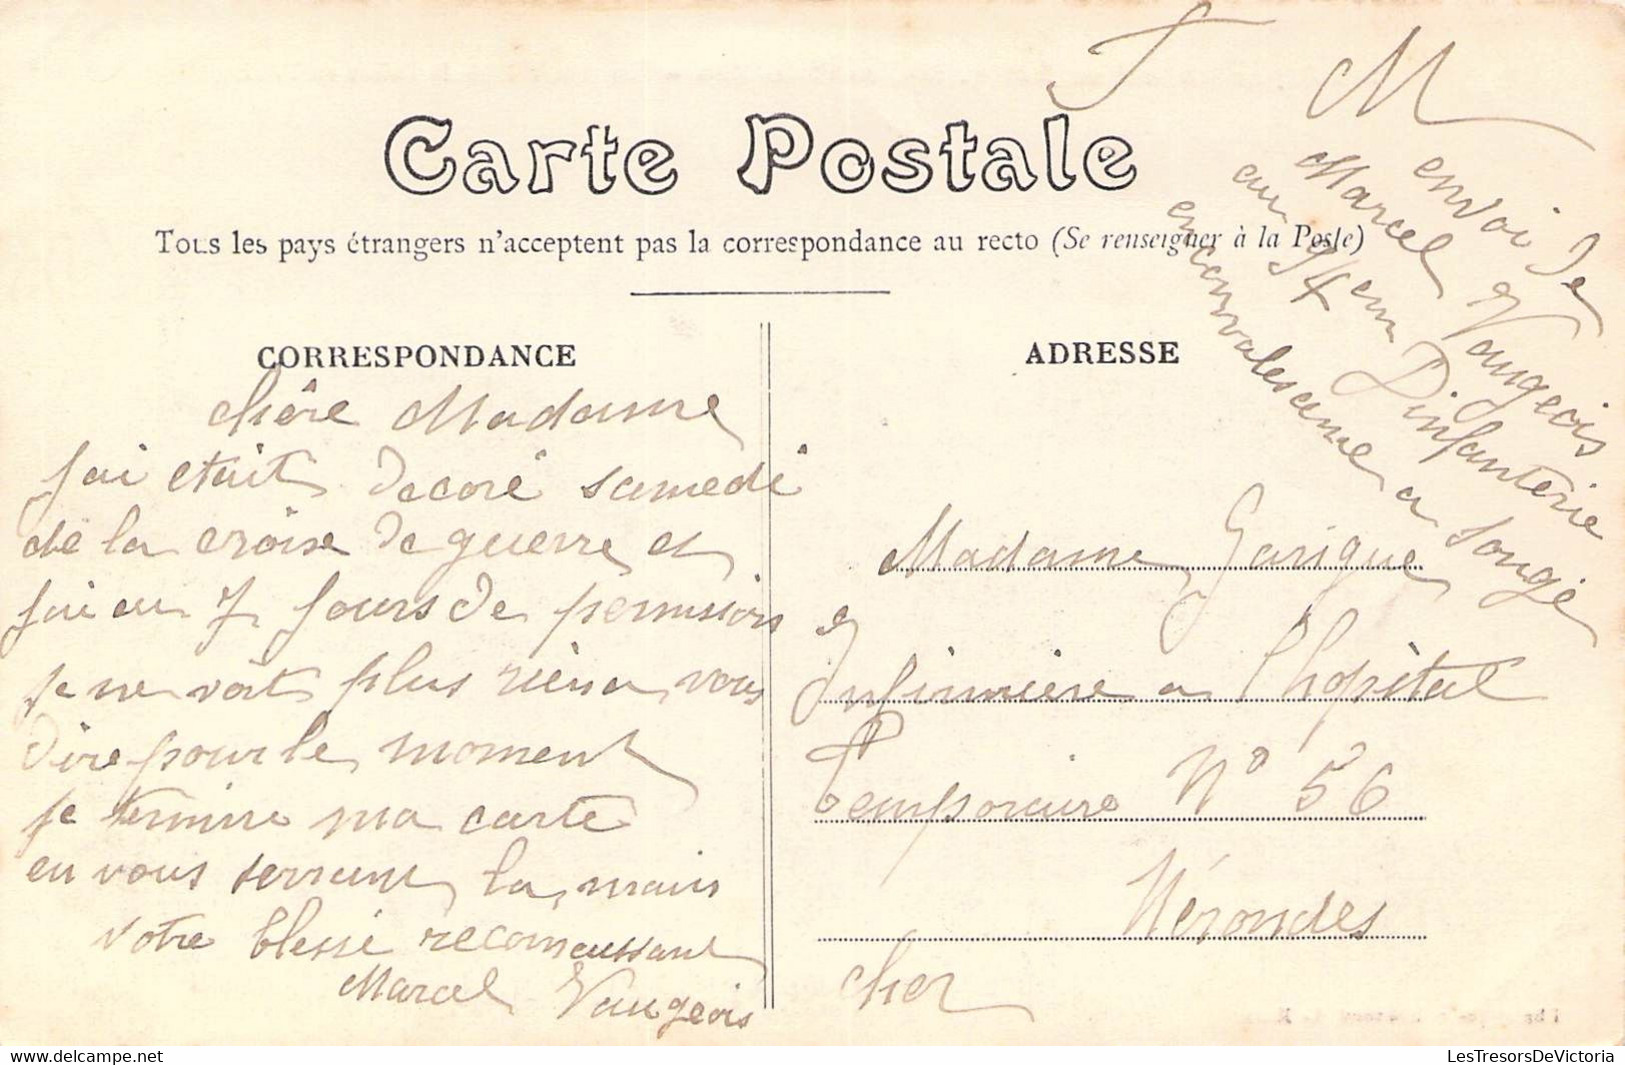 F M
envoi de
Marcel Vaugeois
au 94em D'infanterie
en convalescense a Sougé
Carte Postale
Tous les pays étrangers n'acceptent pas la correspondance au recto (Se renseigner à la Poste)
CORRESPONDANCE
chère Madame
J'ai etait decoré samedi
de la croise de guerre et
J'ai eu 7 Jours de permission
Je ne voit plus rien a vous
dire pour le moment
Je termine ma carte
en vous serrant la main
votre blessé reconnaissant
Marcel Vaugeois
ADRESSE
Madame Garigue
Infirmiere a l'hopital
Temporaire No 56
Nérondes
cher
LesTresorsDeVictoria